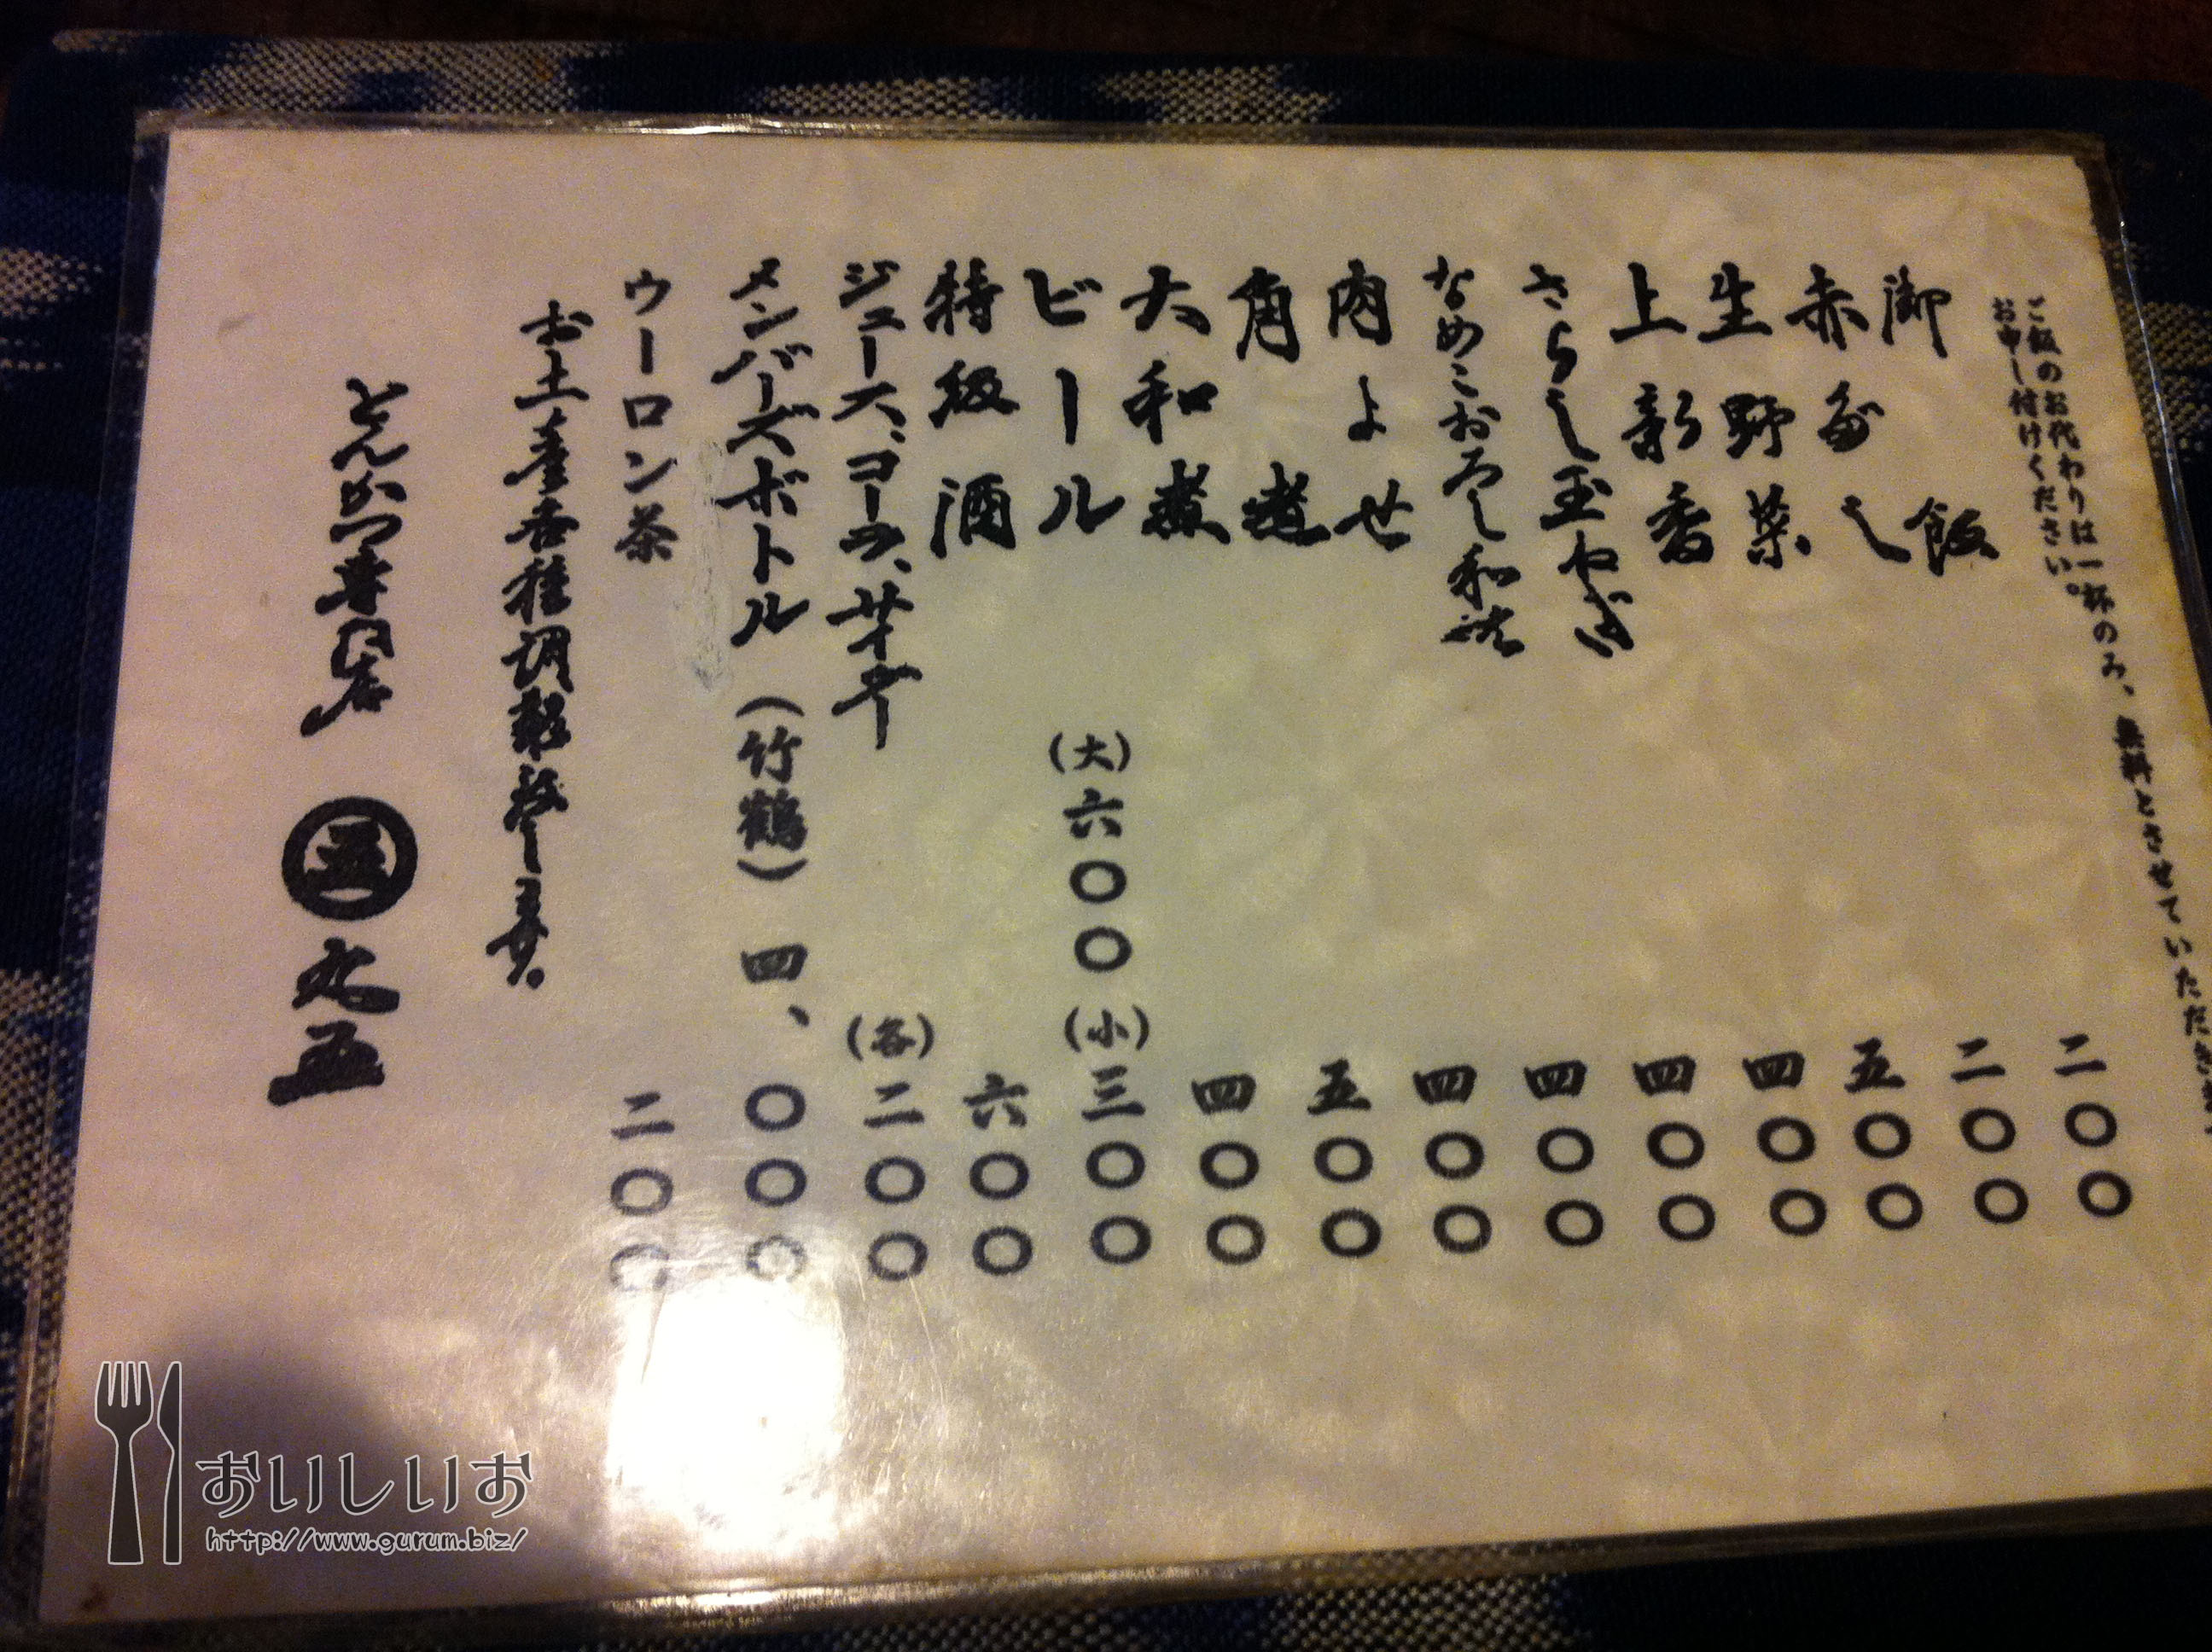 ご飯のお代わりは一杯のみ、無料とさせていただきます
お申し付けください。
御飯 二〇〇
赤だし 二〇〇
生野菜 五〇〇
上新香 四〇〇
さらし玉ねぎ 四〇〇
なめこおろし和え 四〇〇
肉よせ 四〇〇
角煮 五〇〇
大和煮 四〇〇
ビール (大)六〇〇 (小)三〇〇
特級酒 六〇〇
ジュース、コーラ、サイダー (各)二〇〇
メンバーズボトル (竹鶴) 四、〇〇〇
ウーロン茶 二〇〇
お土産各種調製致します。
とんかつ専門店 五 丸五
おいしいお
http://www.gurum.biz/